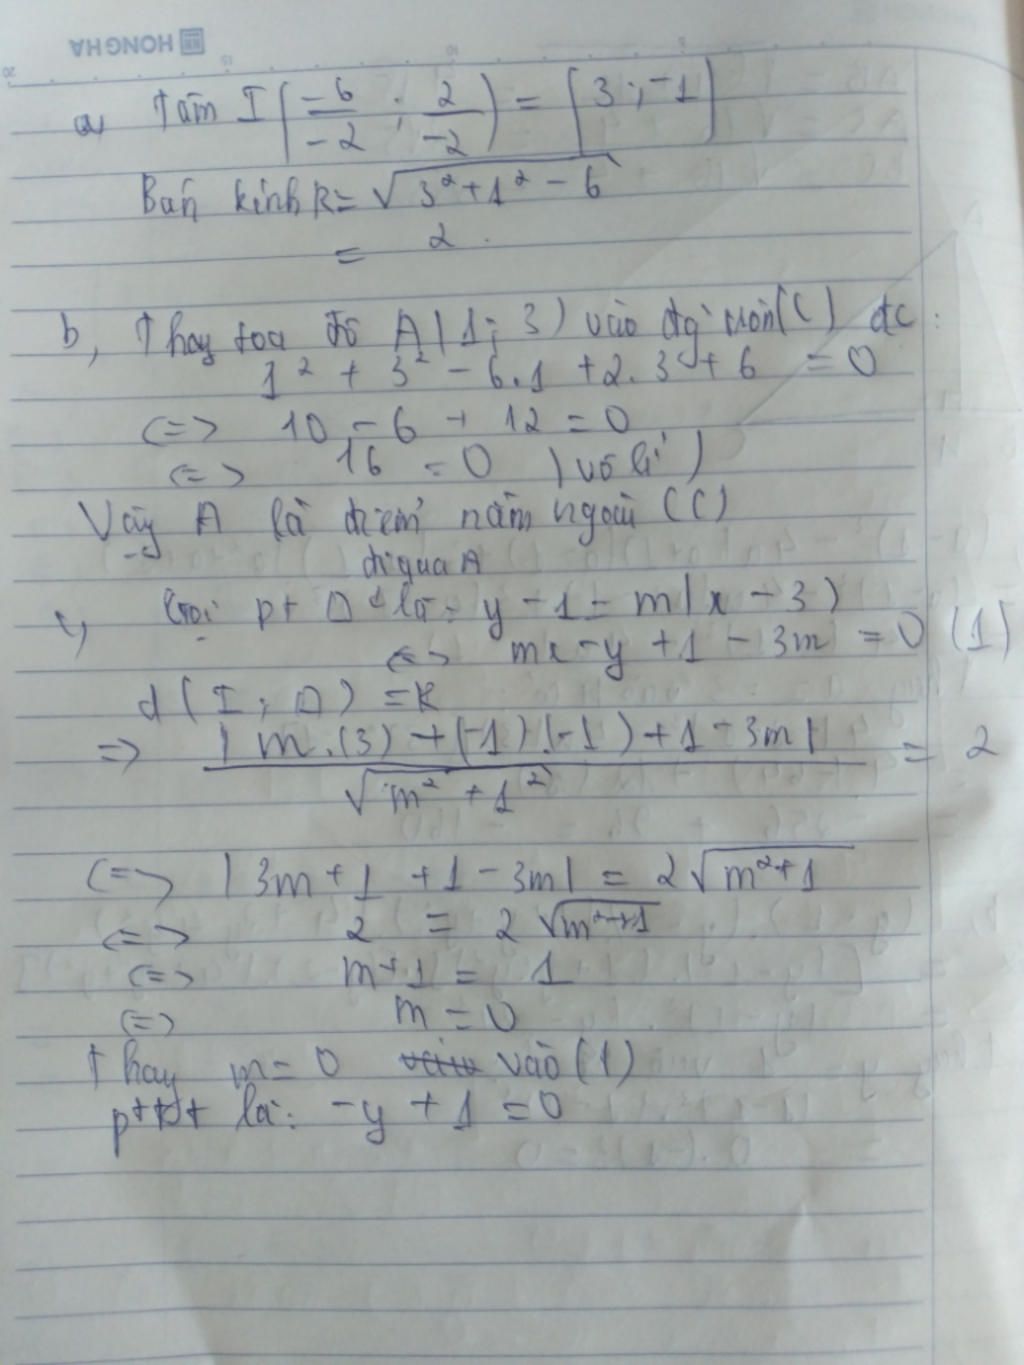 HONGHA
a, Tâm I (-6/-2 ; 2/-2) = (3 ; -1)
Bán kính R = √(3² + 1² - 6)
= 2.
b, Thay toạ độ A(1; 3) vào đg tròn (C) đc:
1² + 3² - 6.1 + 2.3 + 6 = 0
<=> 10 - 6 + 12 = 0
<=> 16 = 0 (vô lí)
Vậy A là điểm nằm ngoài (C)
đi qua A
c, Gọi pt Δ là: y - 1 = m(x - 3)
<=> mx - y + 1 - 3m = 0 (1)
d(I; Δ) = R
=> |m.(3) + (-1)(-1) + 1 - 3m| / √(m² + 1²) = 2
<=> |3m + 1 + 1 - 3m| = 2√(m² + 1)
<=> 2 = 2√(m² + 1)
<=> m + 1 = 1
<=> m = 0
Thay m = 0 vào (1)
pttt là: -y + 1 = 0